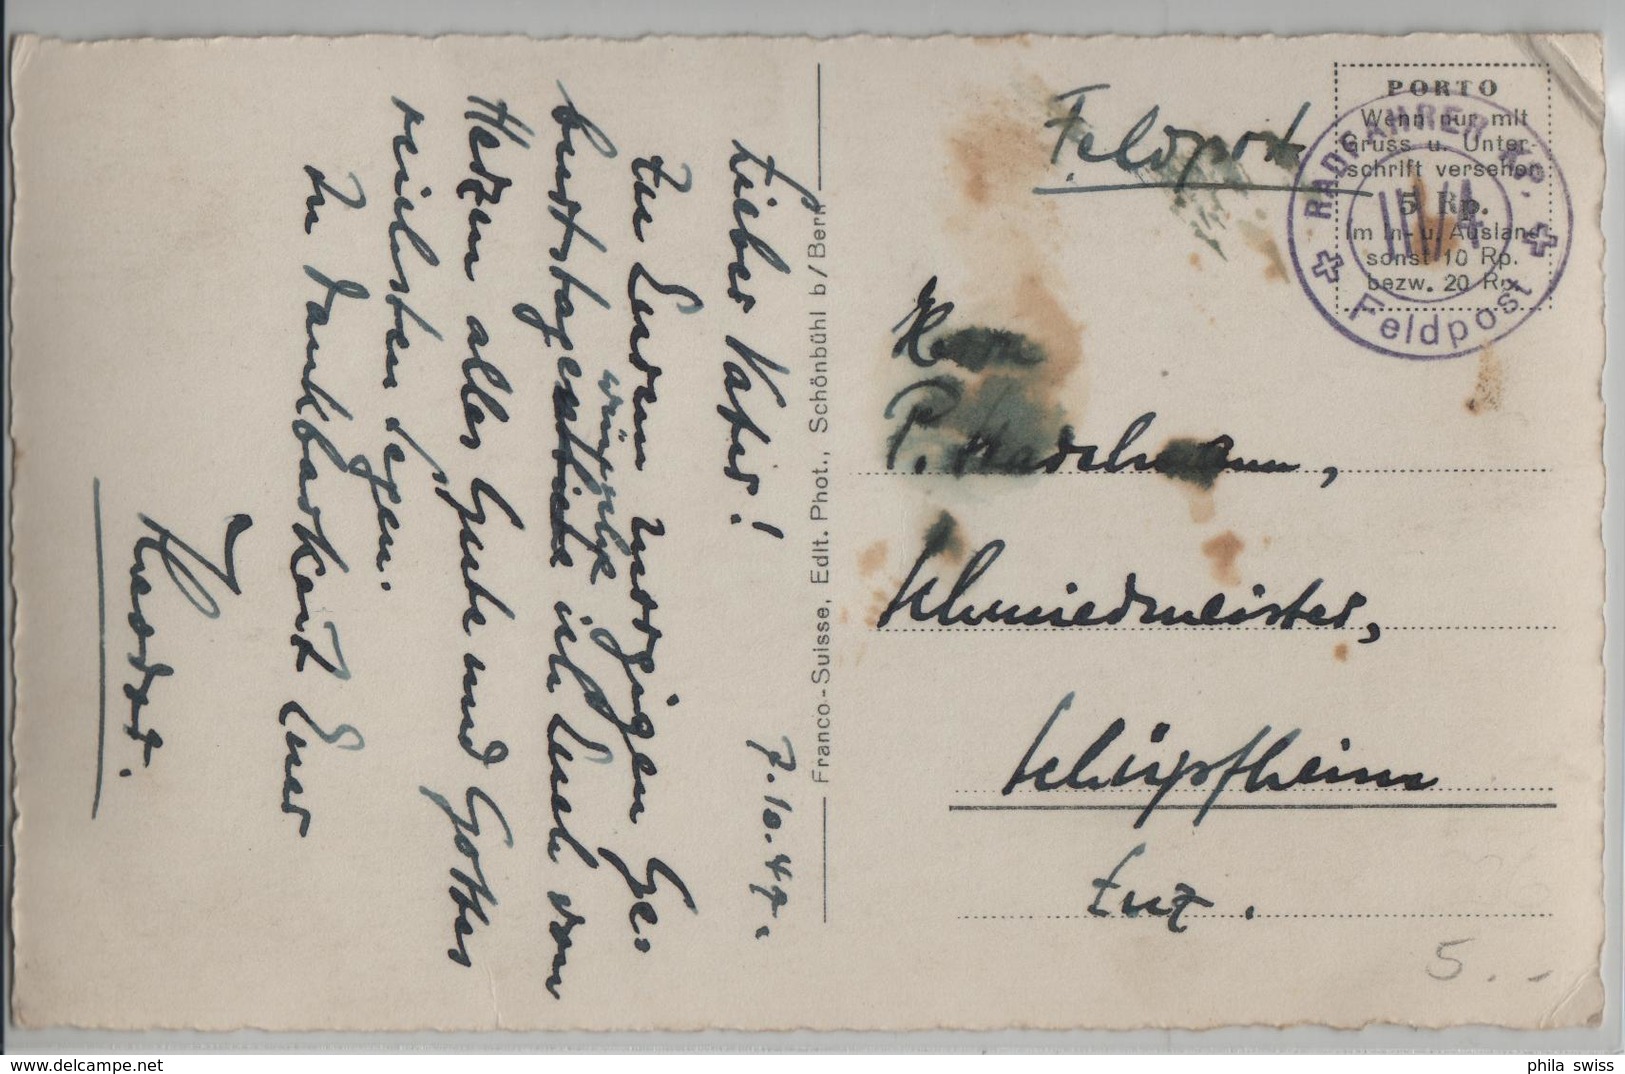 7.10.47.
Lieber Vater!
Zu Eurem morgigen Ge
burtstage
wünsche ich Euch vom
Herzen alles Gute und Gottes
reichsten Segen.
In Dankbarkeit Euer
Theodor.
Franco-Suisse, Edit. Phot., Schönbühl b/Bern
Feldpost
PORTO
Wenn nur mit
Gruss u. Unter-
schrift versehen
5 Rp.
im In- u. Ausland
sonst 10 Rp.
bezw. 20 Rp.
RADFAHRER KP.
II/4
Feldpost
Herrn
P.
Schmiedmeister,
Schüpfheim
Luz.
5.-
delcampe.net
phila swiss